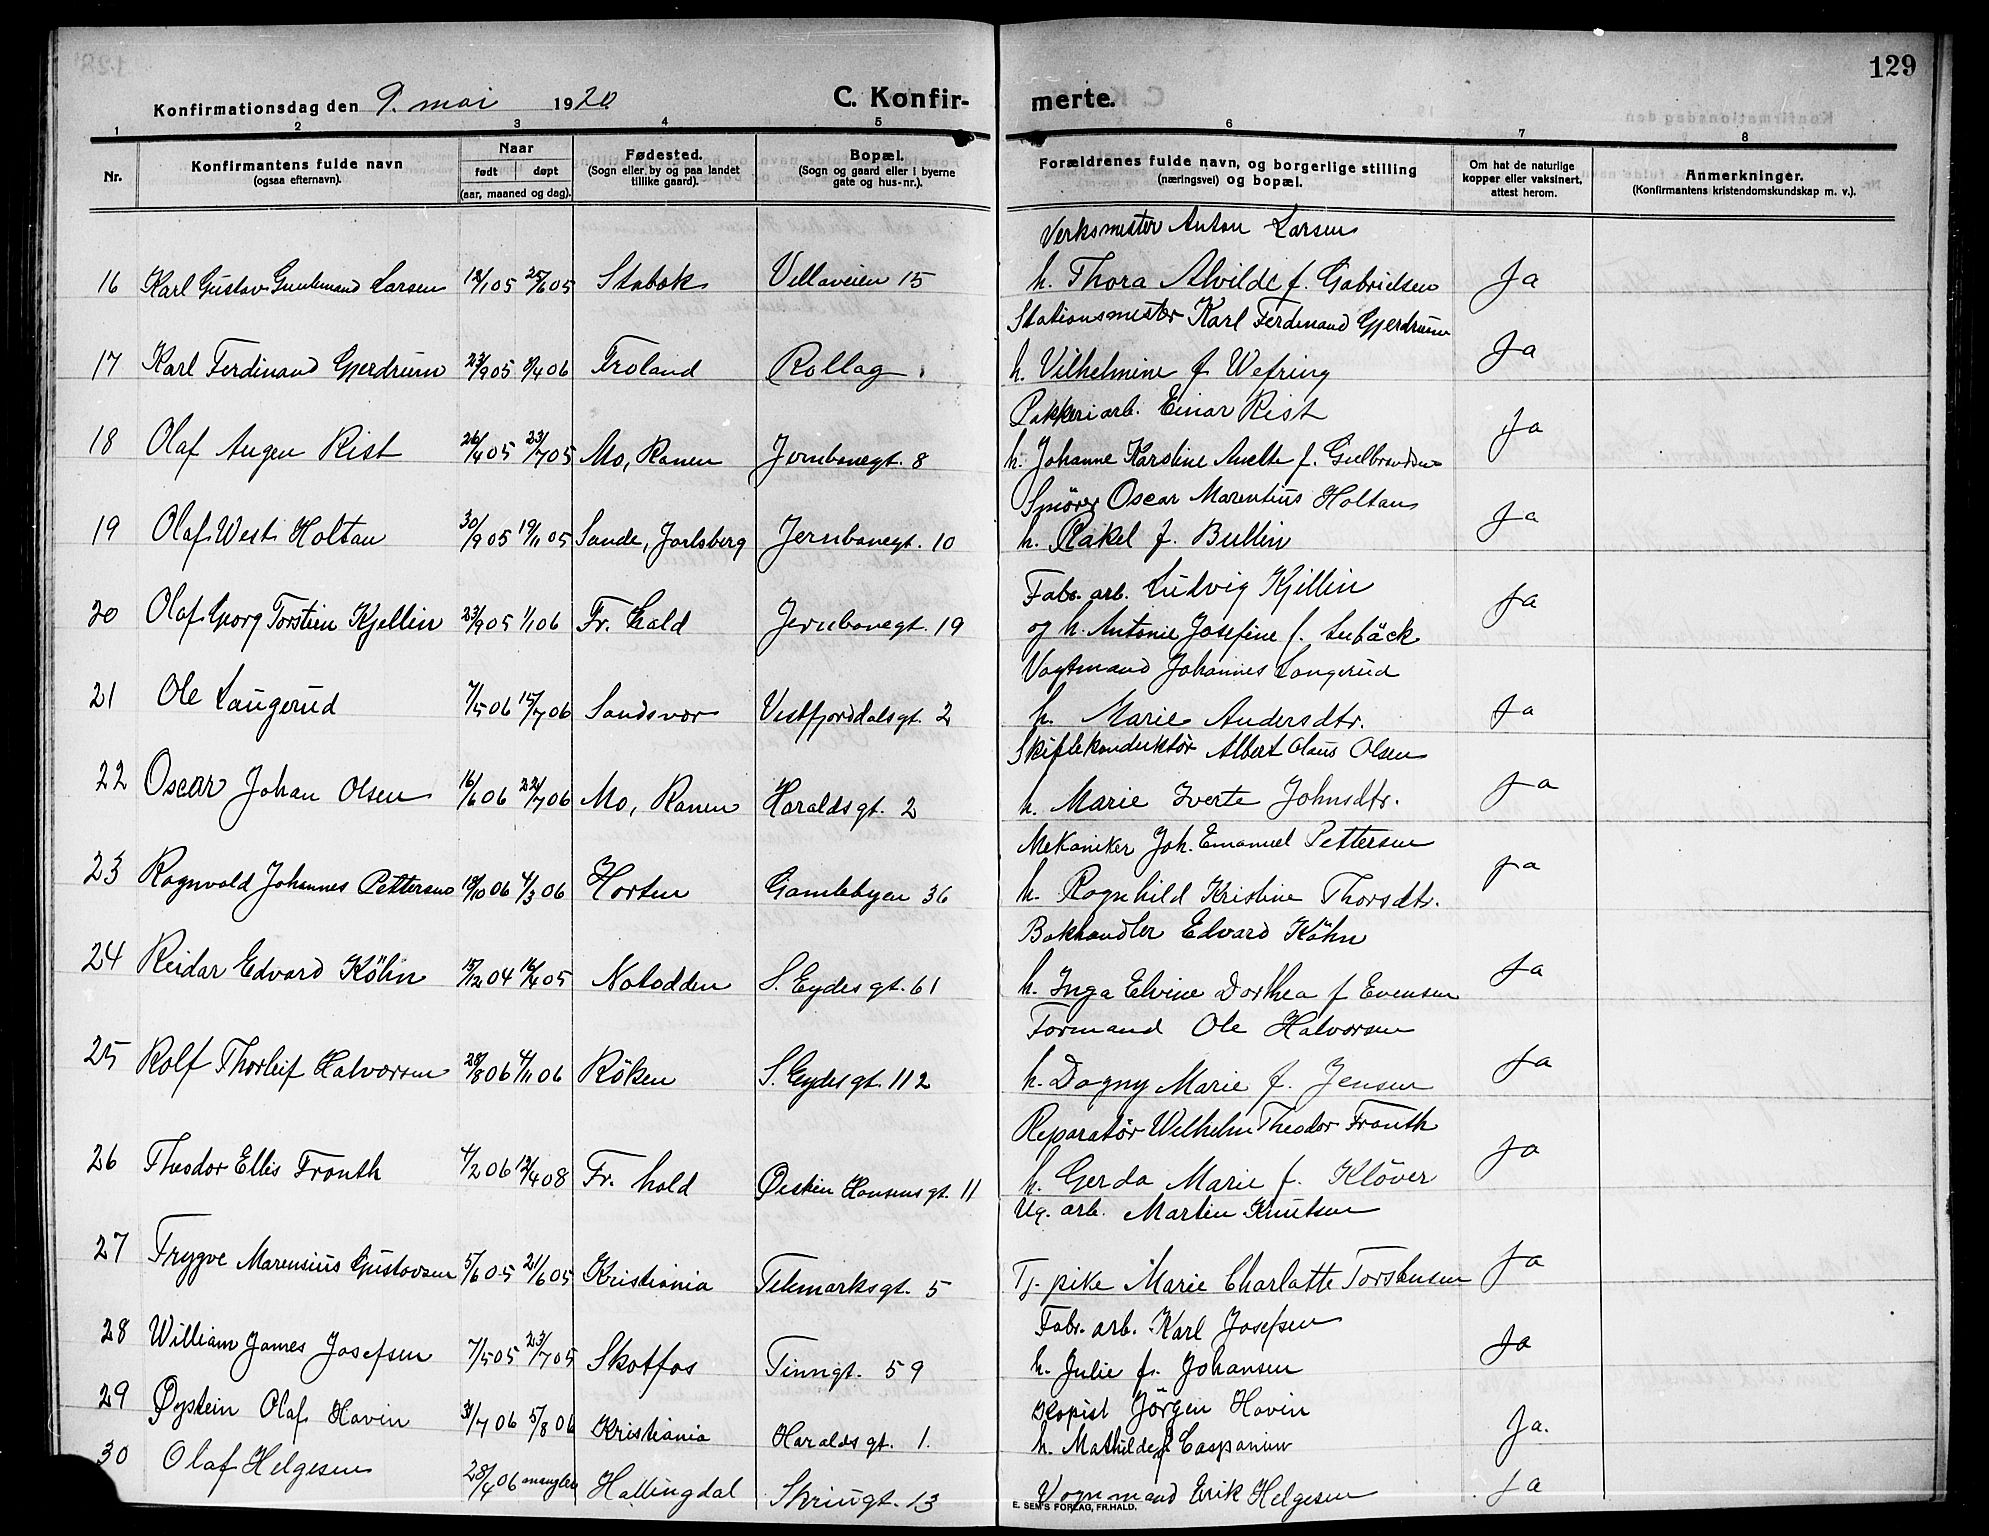 129
Konfirmationsdag den 9. mai 1920 C. Konfirmerte.
1 2 3 4 5 6 7 8
Nr. Konfirmantens fulde navn (ogsaa efternavn). Naar født døpt (aar, maaned og dag). Fødested. (Sogn eller by og paa landet tillike gaard). Bopæl. (Sogn og gaard eller i byerne gate og hus-nr.). Forældrenes fulde navn, og borgerlige stilling (næringsvei) og bopæl. Om hat de naturlige kopper eller vaksinert, attest herom. Anmerkninger. (Konfirmantens kristendomskundskap m. v.).
Verksmester Anton Larsen
16 Karl Gustav Larsen 25/6 05 Stabæk Villaveien 15 h. Thora Alvilde f. Gabrielsen Ja
Stationsmester Karl Ferdinand Gjerdrum
17 Karl Ferdinand Gjerdrum 23/9 05 8/4 06 Froland Rollag. h. Vilhelmine f. Wefring Ja
Pakkeriarb. Einar Rist
18 Olaf Augen Rist 26/4 05 23/7 05 Mo, Ranen Jernbanegt. 8 h. Johanne Karoline Anette f. Gulbrandsen Ja
Smører Oscar Marentius Holtan
19 Olaf West Holtan 30/9 05 19/11 05 Sande, Jarlsberg Jernbanegt. 10 h. Rakel f. Bullin Ja
Fabr. arb. Ludvig Kjellin
20 Olaf Georg Torstein Kjellin 23/9 05 1/1 06 Fr. hald Jernbanegt. 19 og h. Antonie Josefine f. Ja
Vagtmand Johannes Langerud
21 Ole Langerud 7/5 06 15/7 06 Sandsvær Vestfjorddalsgt. 2 h. Marie Andersdtr. Ja
Skiftekonduktør Albert Olaus Olsen
22 Oscar Johan Olsen 16/6 06 22/7 06 Mo, Ranen Haraldsgt. 2 h. Marie Iverte Johnsdtr. Ja
Mekaniker Joh. Emanuel Pettersen
23 Ragnvald Johannes Pettersen 4/3 06 Horten Gamlebyen 36 h. Ragnhild Kristine Thorsdtr. Ja
Bokhandler Edvard Köhn
24 Reidar Edvard Köhn 15/12 04 16/4 05 Notodden S. Eydesgt. 61 h. Inga Elvine Dorthea f Evensen Ja
Formand Ole Halvorsen
25 Rolf Thorleif Halvorsen 28/8 06 4/11 06 Röken S. Eydesgt. 112 h. Dagny Marie f. Jensen Ja
Reparatør Wilhelm Theodor Fronth
26 Theodor Ellis Fronth 4/2 06 12/4 08 Fr. hald Østein Hansensgt. 11 h. Gerda Marie f. Klöver Ja
Ug. arb. Martin Knutsen
27 Trygve Marensius Gustavsen 5/6 05 21/6 05 Kristiania Telemarksgt. 5 Tj. pike Marie Charlotte Torstensen Ja
Fabr. arb. Karl Josefsen
28 William James Josefsen 7/5 05 23/7 05 Skotfos Tinngt. 59 h. Julie f. Johansen Ja
Kopist Jørgen Havin
29 Øystein Olaf Havin 31/7 06 5/8 06 Kristiania Haraldsgt. 1. h. Mathilde f. Ja.
30 Olaf Helgesen 28/4 06 mangler Hallingdal Skriugt. 13 Vognmand Erik Helgesen Ja
E. SEM'S FORLAG, FR.HALD.